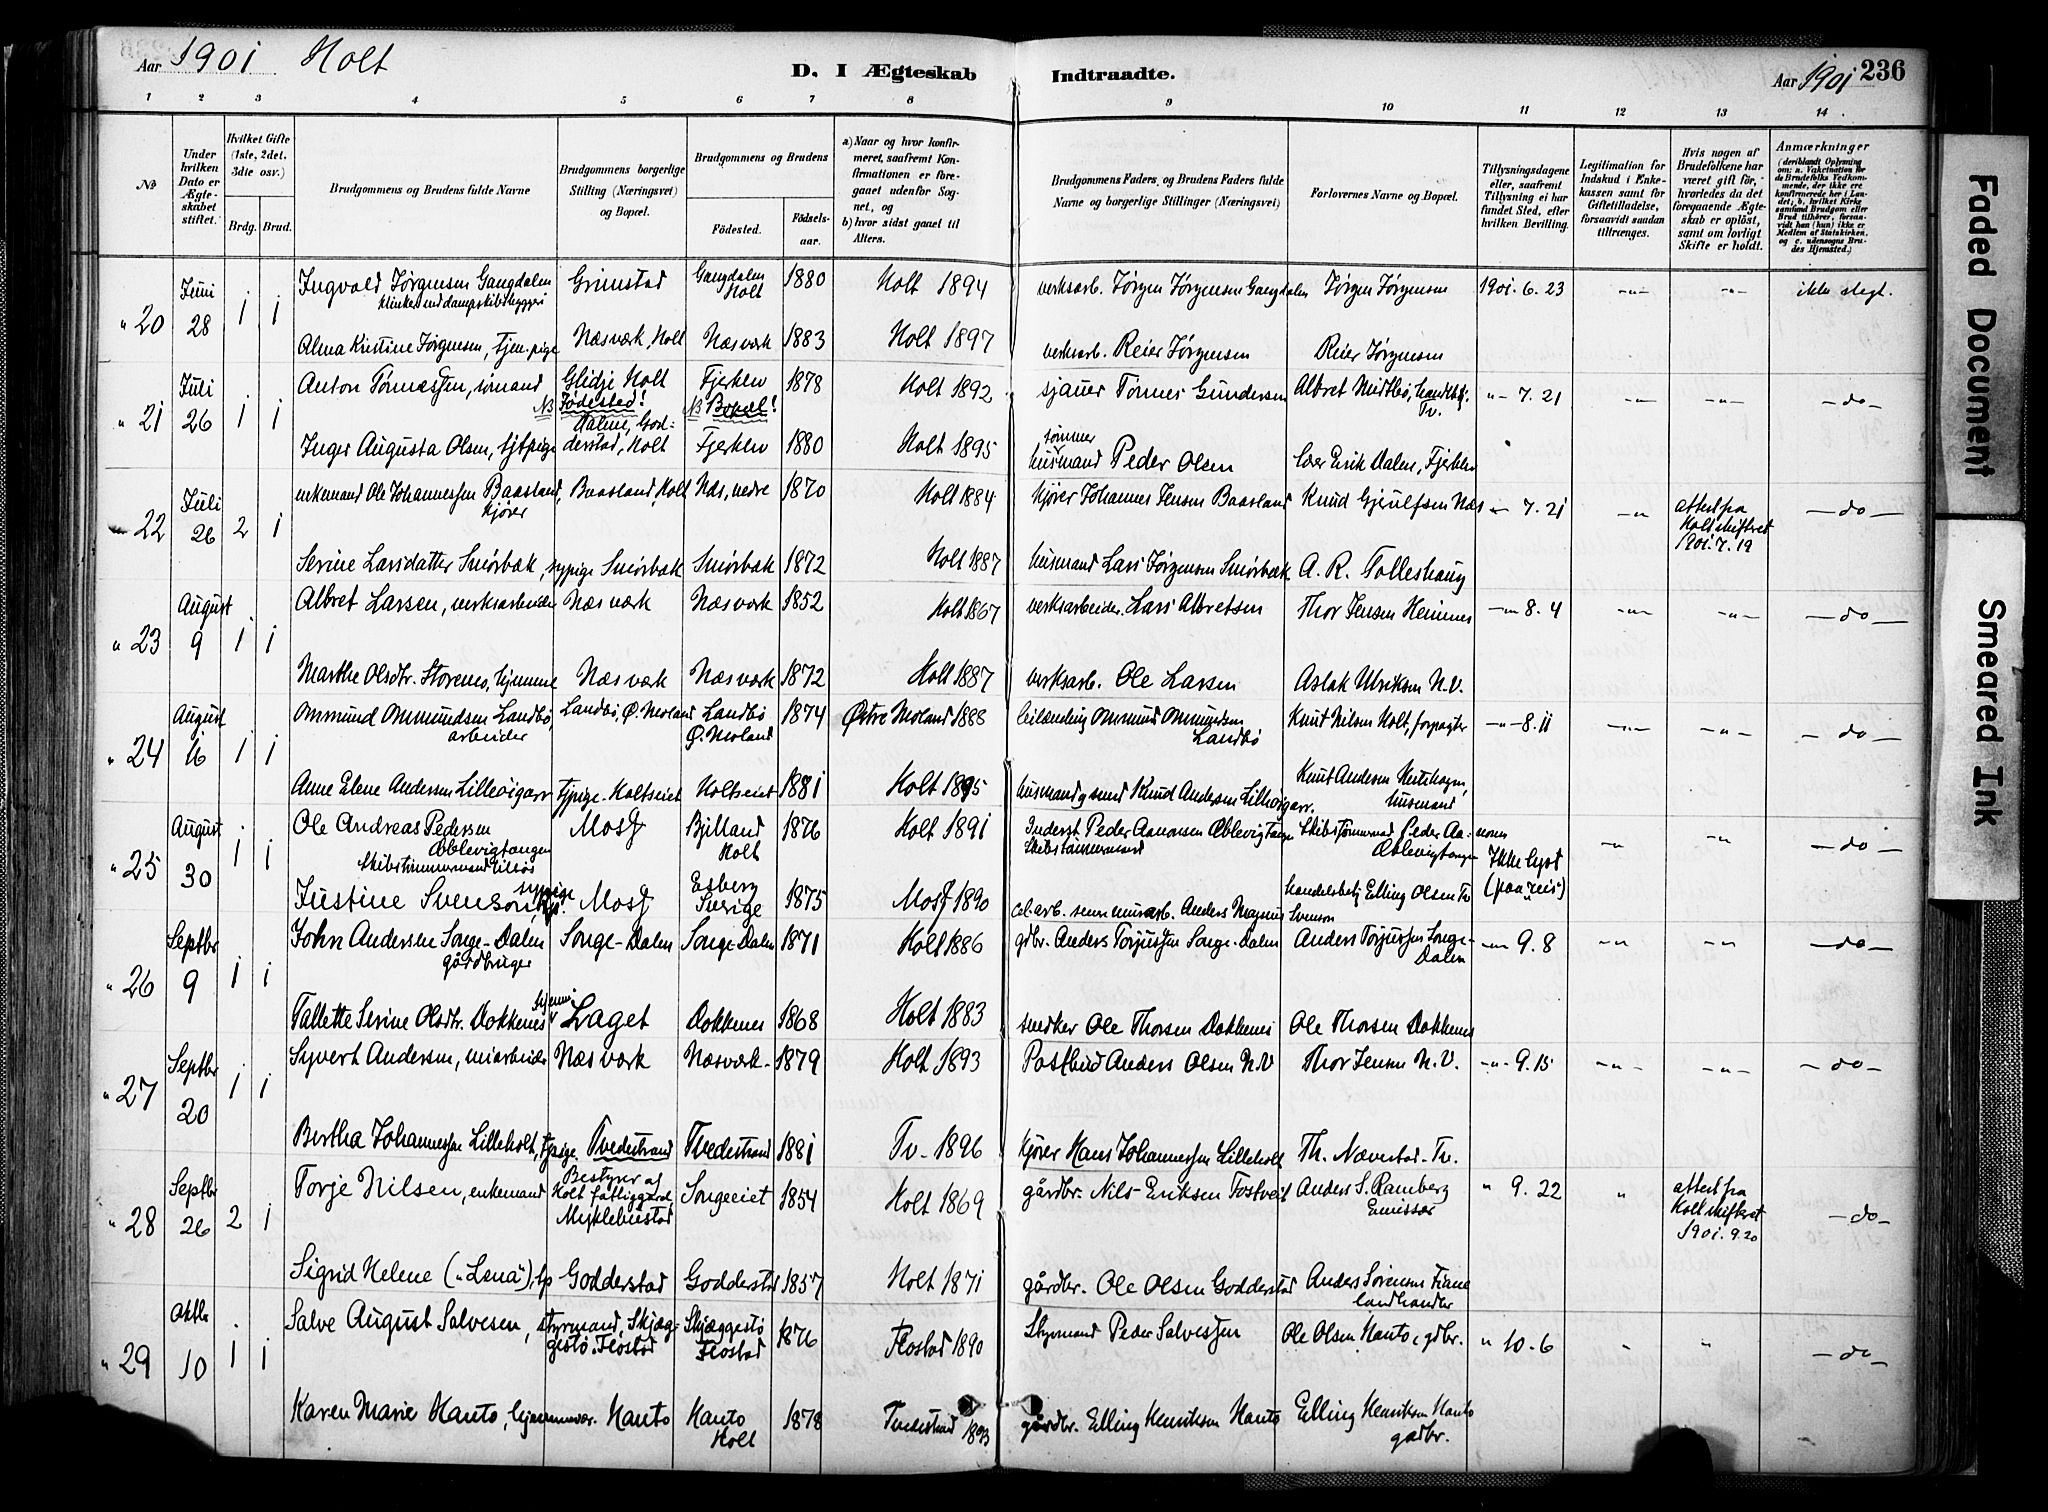 Aar 1901 Holt
D. I Ægteskab Indtraadte.
Aar 1901 236
1 2 3 4 5 6 7 8 9 10 11 12 13 14
№
Under hvilken Dato er Ægteskabet stiftet.
Hvilket Gifte (1ste, 2det. 3die osv.)
Brdg. Brud.
Brudgommens og Brudens fulde Navne
Brudgommens borgerlige Stilling (Næringsvei) og Bopæl.
Brudgommens og Brudens
Fødested. Fødselsaar.
a) Naar og hvor konfirmeret, saafremt Konfirmationen er foregaaet udenfor Sognet, og
b) hvor sidst gaaet til Alters.
Brudgommens Faders, og Brudens Faders fulde Navne og borgerlige Stillinger (Næringsvei)
Forlovernes Navne og Bopæl.
Tillysningsdagene eller, saafremt Tillysning ei har fundet Sted, efter hvilken Bevilling.
Legitimation for Indskud i Enkekassen samt for Giftetilladelse, forsaavidt saadan tiltrænges.
Hvis nogen af Brudefolkene har været gift før, hvorledes da det foregaaende Ægteskab er opløst, samt om lovligt Skifte er holdt.
Anmærkninger
(deriblandt Oplysning om: a. Vakcination for de Brudefolks Vedkommende, der ikke ere konfirmerede her i Landet; b. hvilket Kirkesamfund Brudgom eller Brud tilhører, forsaavidt han (hun) ikke er Medlem af Statskirken, og c. udensogns Brudes Hjemsted.)
" 20 Juni 28 1 1 Ingvald Jørgensen Gangdalen Grimstad Gangdalen Holt 1880 Holt 1894 verksarb. Jørgen Jørgensen Gangdalen Jørgen Jørgensen 1901. 6. 23 -"- -"- ikke slegt.
Alma Kristine Jørgensen, tjen. pige Næsværk, Holt Næsværk 1883 Holt 1897 verksarb. Reier Jørgensen Reier Jørgensen
" 21 Juli 26 1 1 Anton Tønnessen, sømand Glidje Holt Fjerklev 1878 Holt 1892 sjauer Tønnes Gundersen Albret Midtbø, Tv. -"- 7. 21 -"- -"- -do-
NB Fødested! NB Bopæl!
Inger Augusta Olsen, Dalene, Godderstad, Holt Fjerklev 1880 Holt 1895 tømmer husmand Peder Olsen Lars Erik Dalen, Fjerklev
22 Juli 26 2 1 enkemand Ole Johannessen Baasland, kjører Baasland, Holt Næs, nedre 1870 Holt 1884 kjører Johannes Jensen Baasland Knud Gjeruldsen Næs -"- 7. 21 -"- attest fra Holt skifteret 1901. 7. 19 -do-
Serine Larsdatter Smørbæk, sypige Smørbæk Smørbæk 1872 Holt 1887 husmand Lars Jørgensen Smørbæk A. R. Tolleshaug
" 23 August 9 1 1 Albret Larsen, verksarbeider Næsværk Næsværk 1852 Holt 1867 verksarbeider Lars Albretsen Thor Jensen Heimnes -"- 8. 4 -"- -"- -do-
Marthe Olsdtr. Storenes, hjemme Næsværk Næsværk 1872 Holt 1887 verksarb. Ole Larsen Aslak Ulriksen N.V.
" 24 August 16 1 1 Ommund Ommundsen Landbø, arbeider Landbø, Ø. Moland Landbø Ø. Moland 1874 Østre Moland 1888 leilænding Ommund Ommundsen Landbø Knut Nilsen Holt, forpagter -"- 8. 11 -"- -"- -do-
Anne Elene Andersen Lillevigarr tjpige. Holtseiet Holtseiet 1881 Holt 1895 husmand Knud Andersen Lillevigarr. Knut Andersen, husmand
" 25 August 30 1 1 Ole Andreas Pedersen Æblevigtangen Moss Bjelland Holt 1876 Holt 1891 Inderst Peder Aanonsen Æblevigtangen Skibstømmermand Skibstømmermand Peder Aanonsen Æblevigtangen Ikke lyst -"- -"- -do-
Justine Svenson sypige Moss Esberg Sverige 1875 Moss 1890 murarb. Anders Magnus Svenson handelsbetj. Elling Olsen Tv
" 26 Septbr 9 1 1 John Andersen Songe-Dalen gårdbruger Songe-Dalen Songe-Dalen 1871 Holt 1886 gdbr. Anders Torjussen Songe-Dalen Anders Torjussen Songe-Dalen -"- 9. 8 -"- -"- -do-
Tallette Serine Olsdtr. Dokkenes hjemme Laget Dokkenes 1868 Holt 1883 snedker Ole Thorsen Dokkenes Ole Thorsen Dokkenes
" 27 Septbr 20 1 1 Syvert Andersen, Næsværk Næsværk 1879 Holt 1893 Postbud Anders Olsen N.V Thor Jensen N.V. -"- 9. 15 -"- -"- -do-
Bertha Johannessen Lilleholt, tjpige. Tvedestrand Tvedestrand 1881 Tv. 1896 kjører Hans Johannessen Lilleholt Th. Nævestad. Tv.
" 28 Septbr 26 2 1 Torje Nilsen, enkemand Bestyrer af Holt fattiggård Myklebustad Songeeiet 1854 Holt 1869 gårdbr. Nils Eriksen Fostveit Anders S. Ramberg Emissær " 9. 22 " attest fra Holt skifteret 1901. 9. 20 -do-
Sigrid Helene ("Lena"), Godderstad Godderstad 1857 Holt 1871 gårdbr. Ole Olsen Godderstad Anders Sørensen Fiane landhandler
" 29 Oktbr 10 1 1 Salve August Salvesen, styrmand, Skjæggestø. Flostad Skjæggestø Flostad 1876 Flostad 1890 Styrmand Peder Salvessen Ole Olsen Hanto, gdbr. " 10. 6 " " -do-
Karen Marie Hanto, hjemmevær. Hanto Hanto Holt 1878 Tvedestrand 1893 gårdbr. Elling Henriksen Hanto Elling Henriksen Hanto gadbr.
Faded Document
Smeared Ink